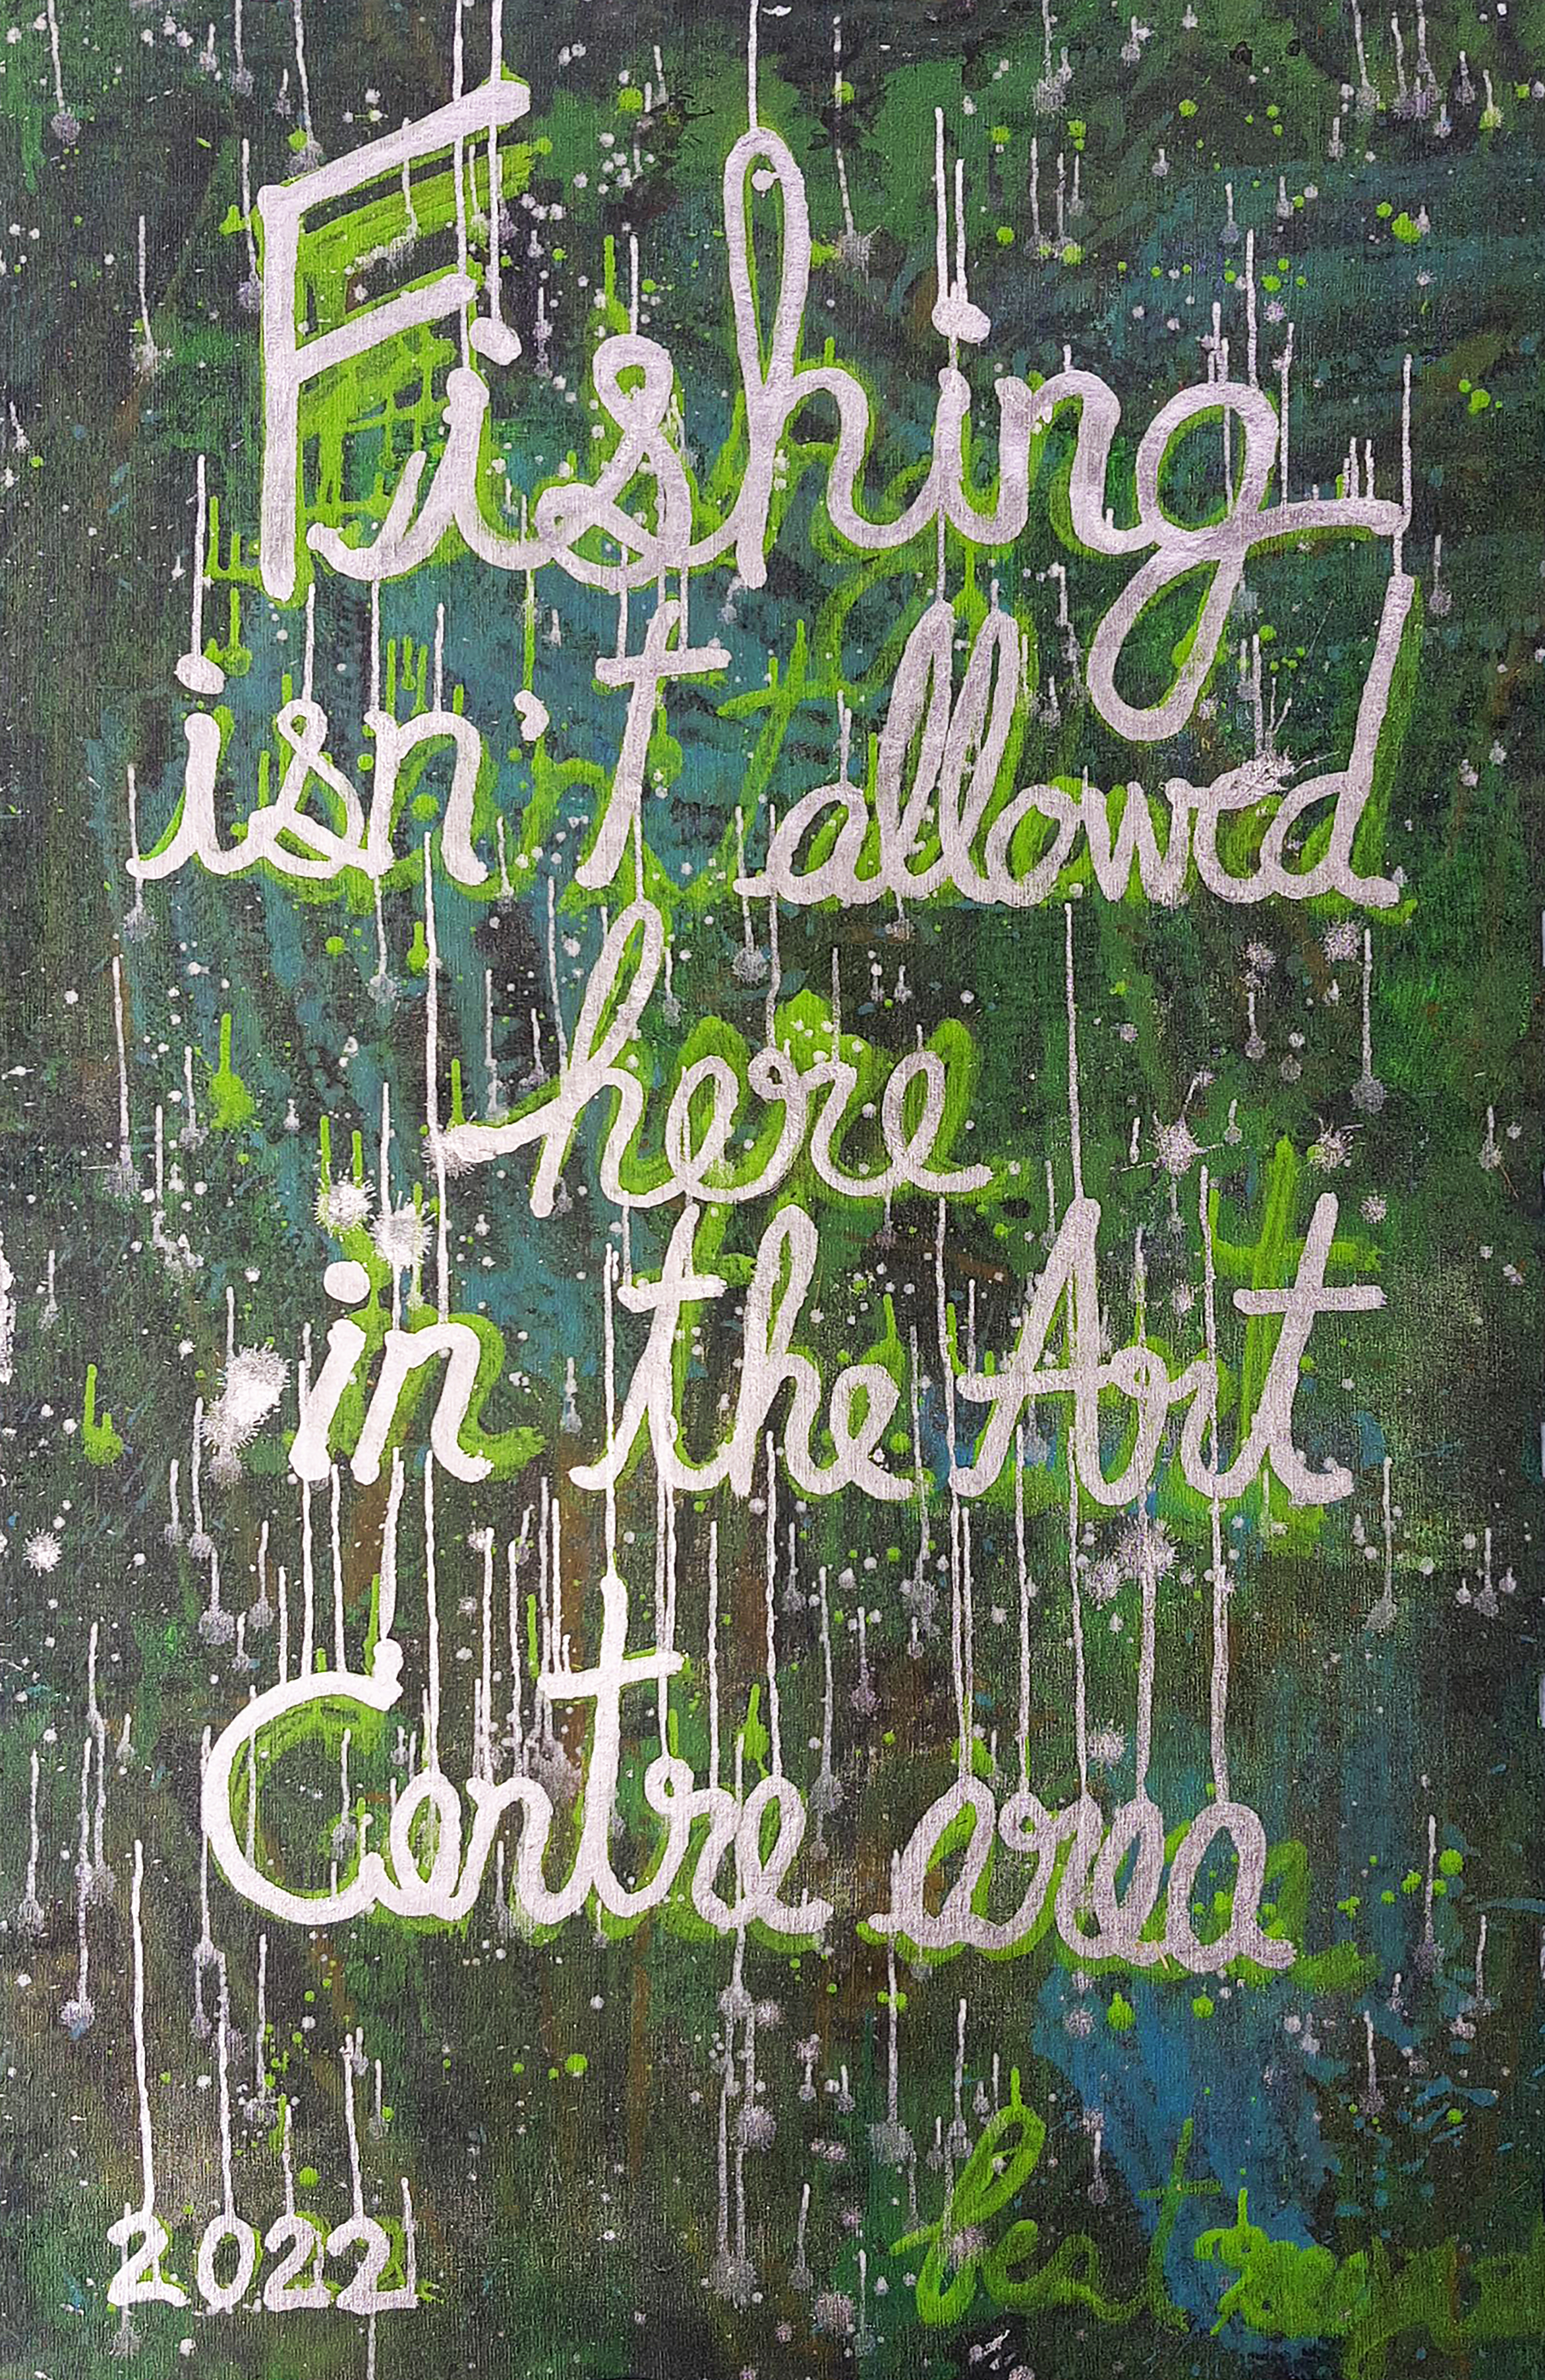 Fishing
isn't allowed
here
in the Art
Centre area
2022